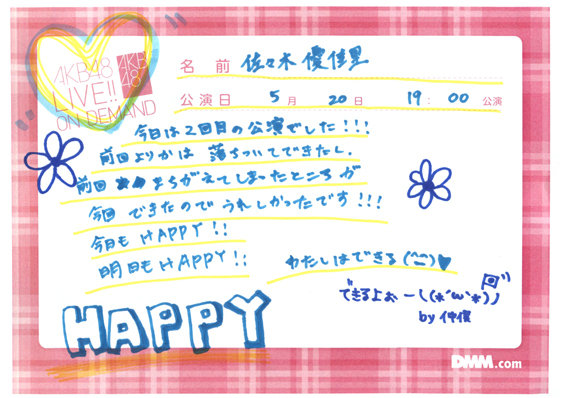 AKB48
LIVE!!
ON DEMAND
AKB
48
名前 佐々木優佳里
公演日 5月 20日 19:00 公演
今日は2回目の公演でした!!!
前回よりかは落ちついてできたし、
前回 まちがえてしまったところが
今回できたのでうれしかったです!!!
今日もHAPPY!!
明日もHAPPY!!
わたしはできる(^^)♥
できるよぉーし(*´ω`*)ノ
by 仲俣
HAPPY
DMM.com